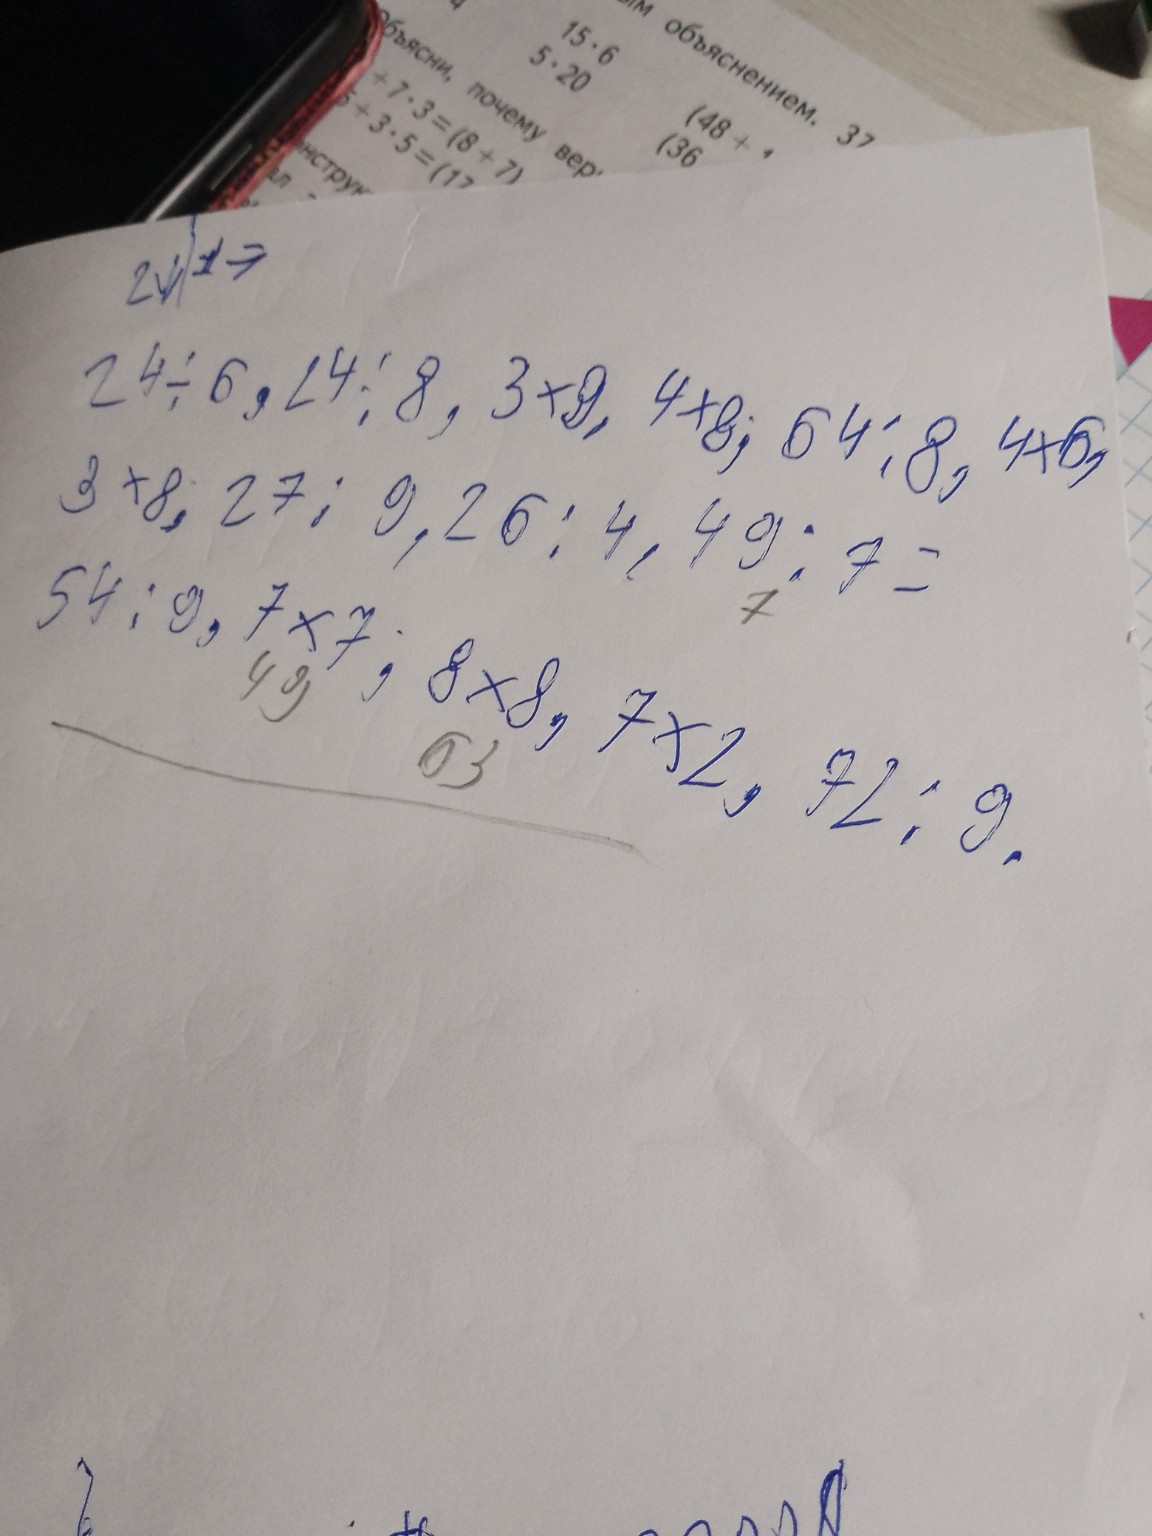 ым объяснением. 37
15·6
5·20
(48 +
(36
объясни, почему вер
+ 7·3 = (8 + 7)
+ 3·5 = (17
2↓ 1→
24÷6, 24:8, 3×9, 4×8; 64:8, 4×6,
3×8, 27:9, 26:4, 49:7=
7
54:9, 7×7; 8×8, 7×2, 72:9.
49
63